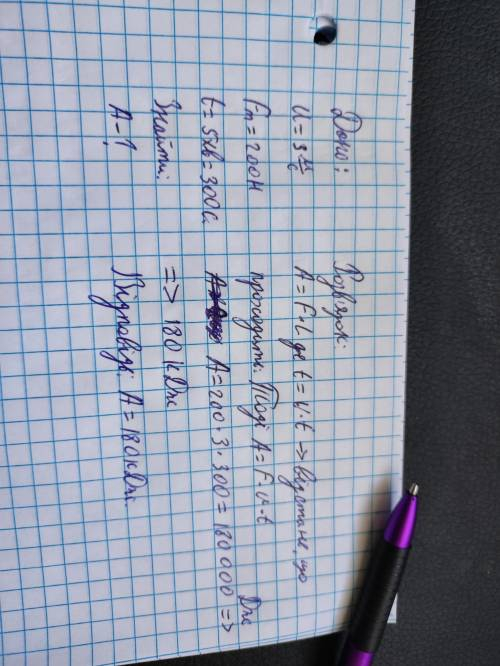 Дано:
u = 3 м/с
Fт = 200 Н
t = 5 хв = 300 с.
Знайти:
А - ?
Розв'язок:
A = F·L де t = v·t → відстань, що
проходить. Тоді A = F·v·t
A = 200·3·300 = 180 000 Дж =>
=> 180 кДж
Відповідь: A = 180 кДж.